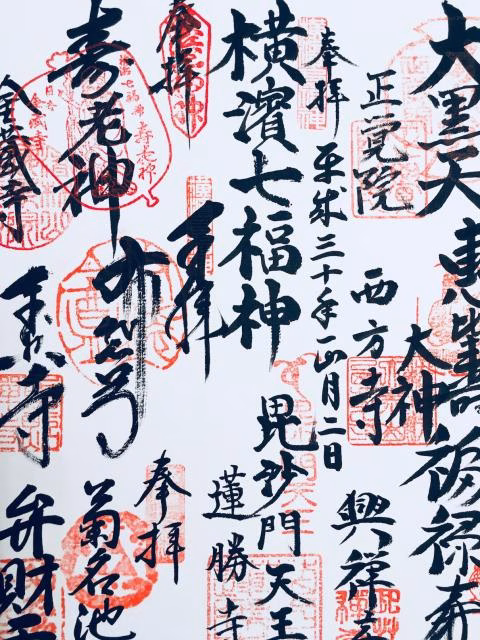 大黒天
正覚院
恵比寿大神
西方寺
福禄寿
興禅寺
奉拝
平成三十年一月二日
横濱七福神
毘沙門天王
蓮勝寺
奉拝
奉拝
奉拝
寿老神
金蔵寺
布袋尊
弁財天
菊名池